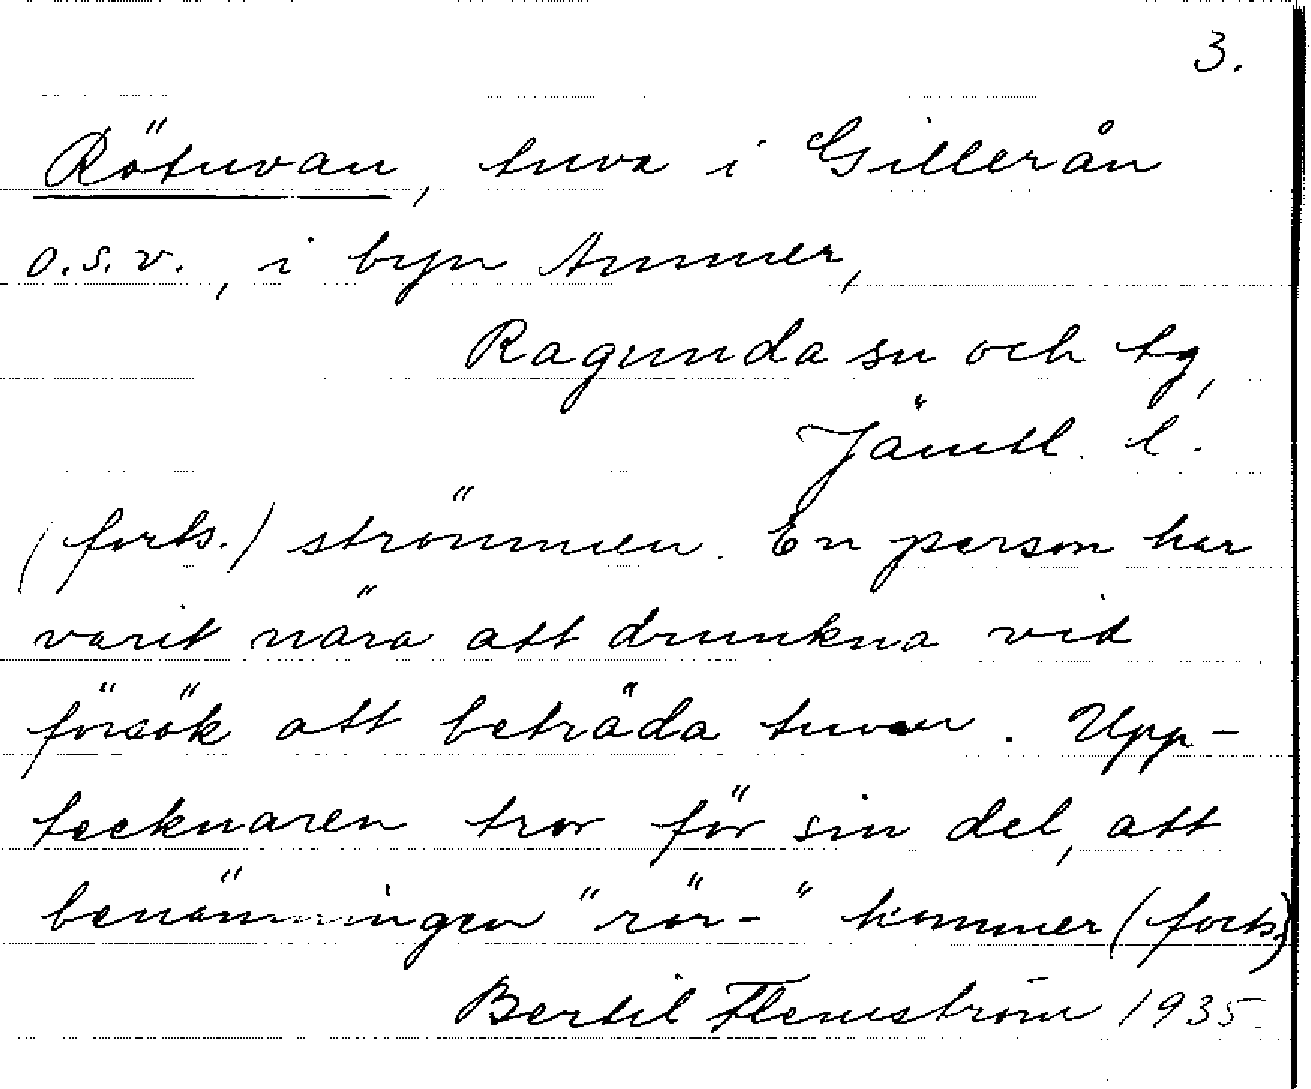 3.
Rötuvan, tuva i Gillerån
o.s.v., i byn Ammer,
Ragunda sn och tg,
Jämtl. l.
(forts.) strömmen. En person har
varit nära att drunkna vid
försök att beträda tuvan. Upp-
tecknaren tror för sin del, att
benämningen "rör-" kommer (forts.)
Bertil Flemström 1935.